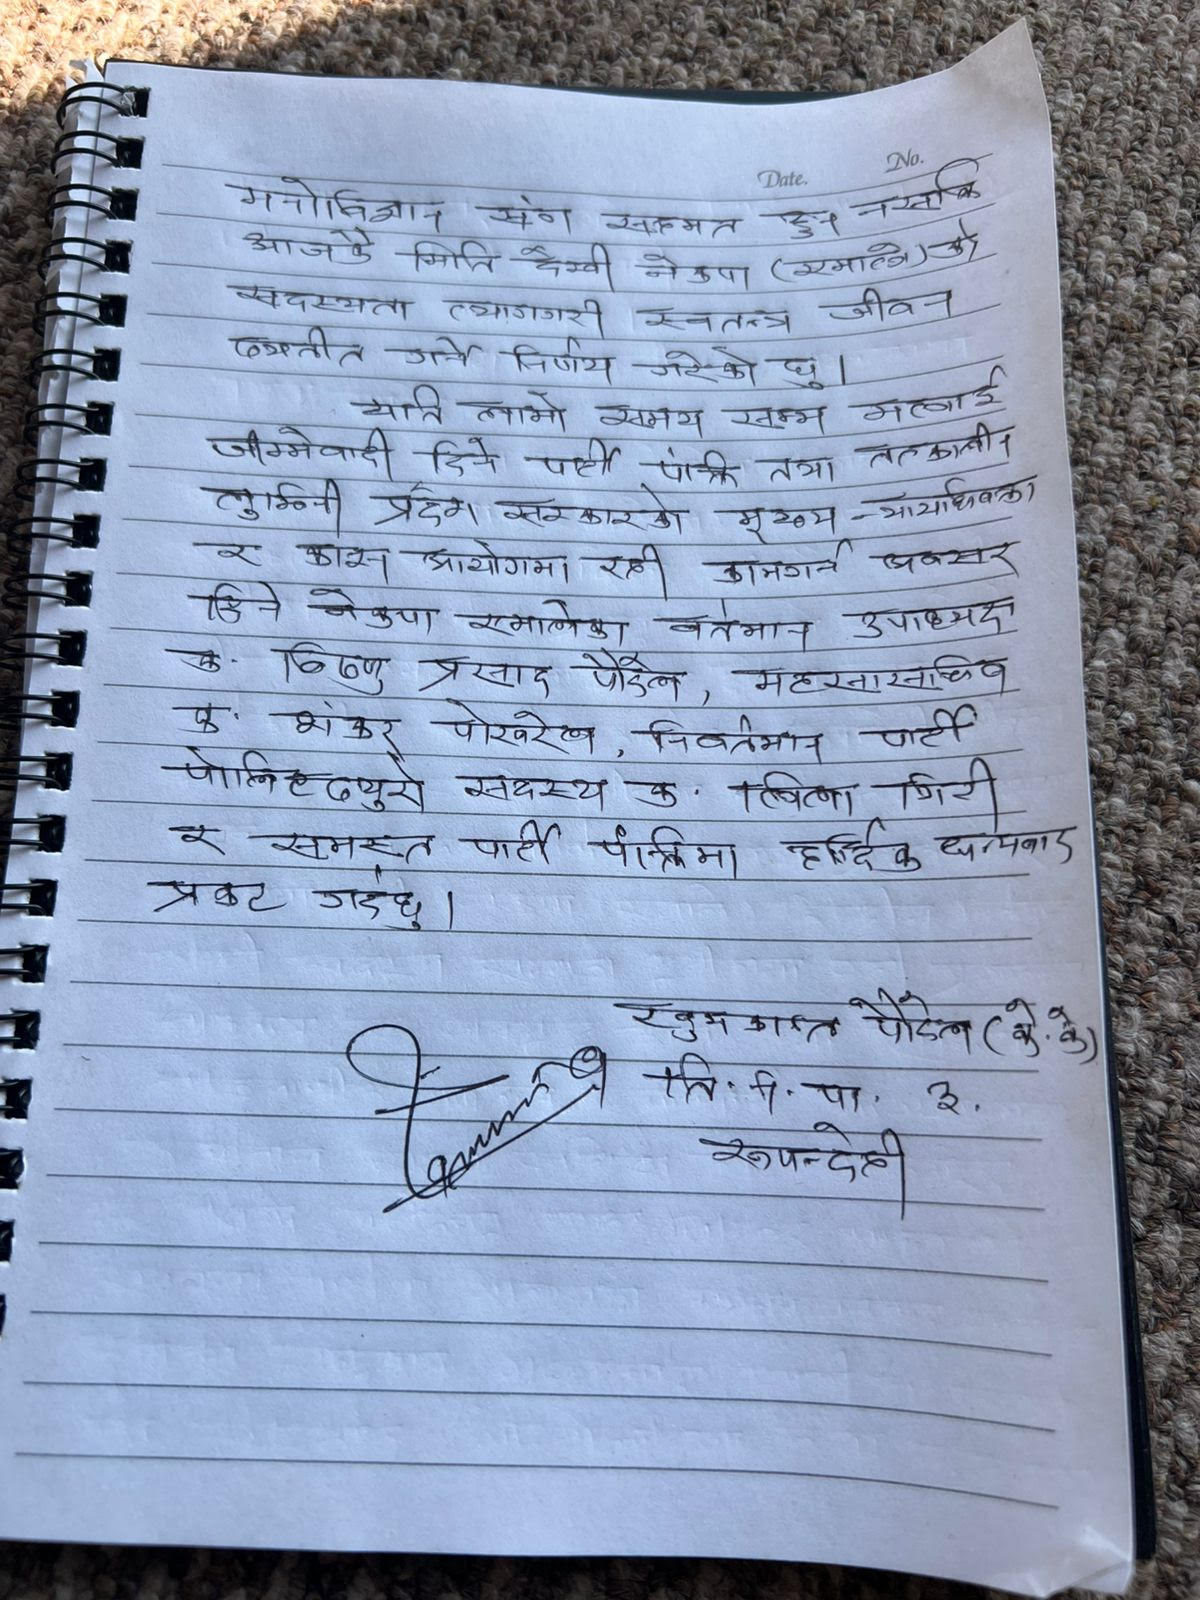 No.
Date.
मनोविज्ञान संग सहमत हुन नसकि
आजकै मिति देखी नेकपा (एमाले) को
सदस्यता त्यागगरी स्वतन्त्र जीवन
व्यतीत गर्ने निर्णय गरेको छु।
यति लामो समय सम्म मलाई
जीम्मेवारी दिने पार्टी पंक्ति तथा तत्कालीन
लुम्बिनी प्रदेश सरकारको मूख्य न्यायाधिवक्ता
र कानून आयोगमा रही कामगर्न अवसर
दिने नेकपा एमालेका वर्तमान उपाध्यक्ष
क. विष्णु प्रसाद पौडेल, महासचिव
क. शंकर पोखरेल, निवर्तमान पार्टी
पोलिटव्युरो सदस्य क. लिला गिरी
र समस्त पार्टी पंक्तिमा हार्दिक धन्यवाद
प्रकट गर्दछु।
पौडेल (के.के)
ति. न. पा. ३.
रूपन्देही